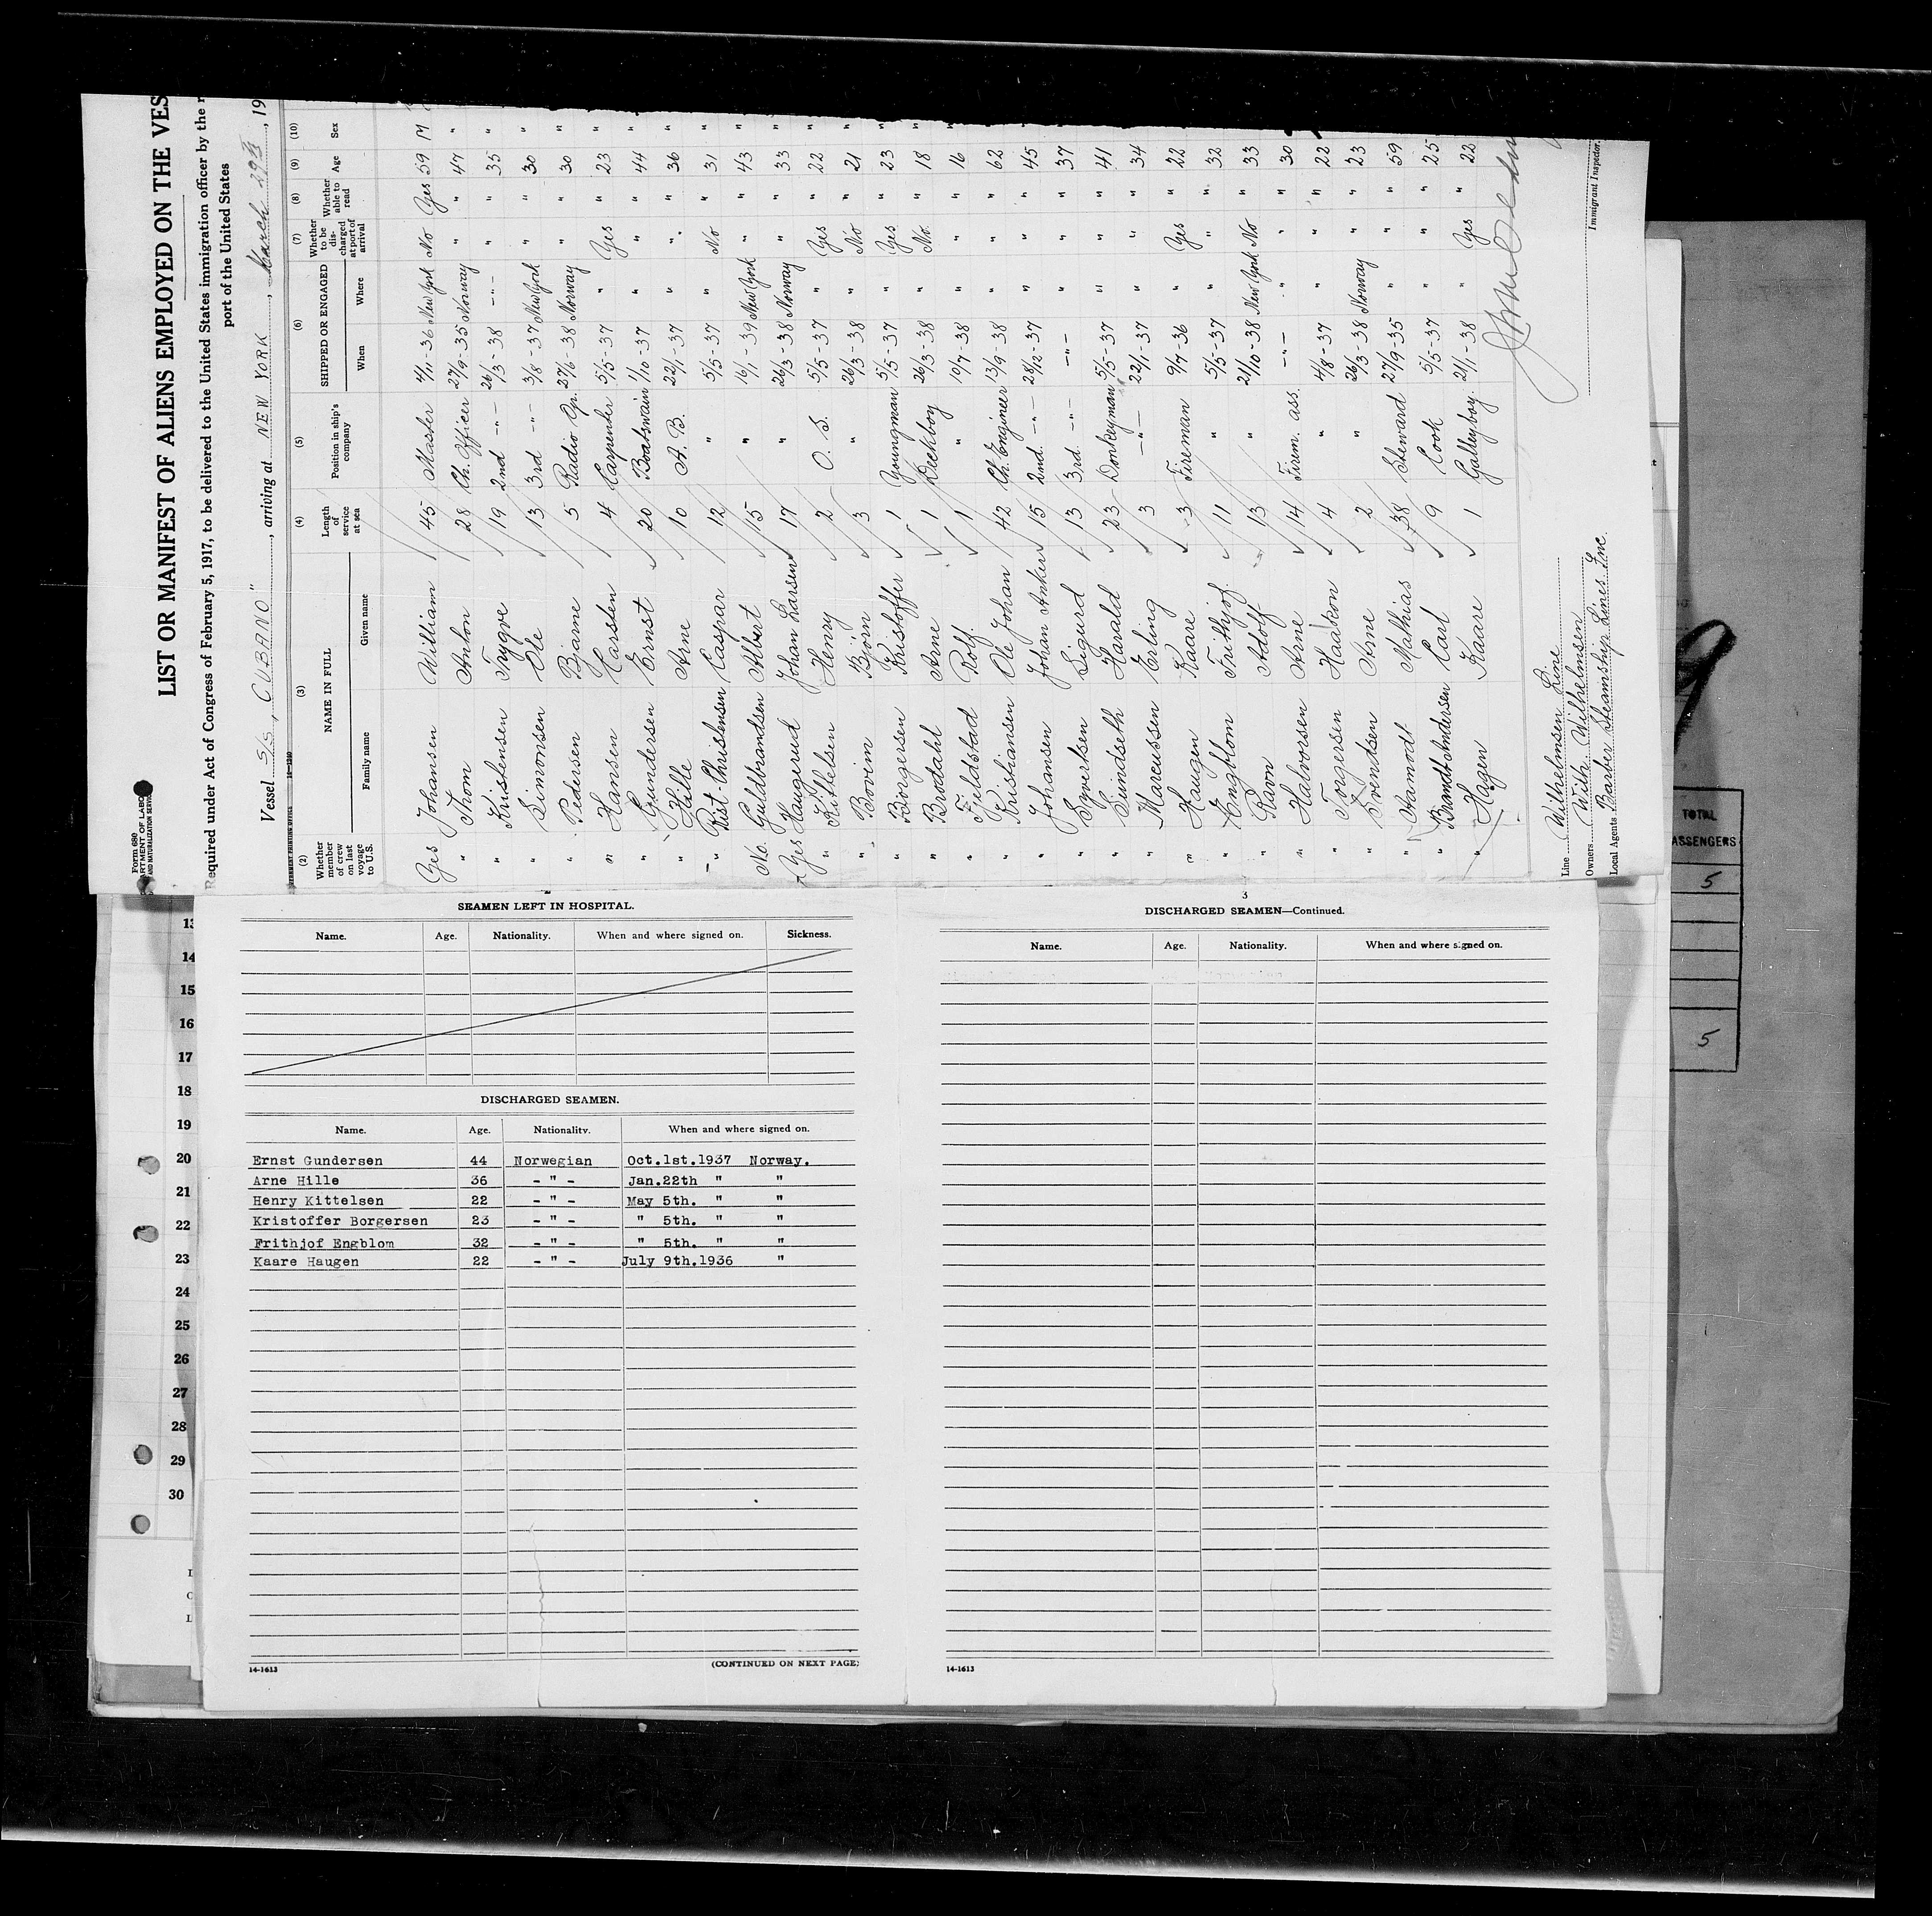 Form 680
LIST OR MANIFEST OF ALIENS EMPLOYED ON THE VES
Required under Act of Congress of February 5, 1917, to be delivered to the United States immigration officer by the r
port of the United States
Vessel S/S, CUBANO", arriving at NEW YORK, March 29th, 19
(2) (3) (4) (5) (6) (7) (8) (9) (10)
Whether member of crew on last voyage to U.S. NAME IN FULL Family name Given name Length of service at sea Position in ship's company SHIPPED OR ENGAGED When Where Whether to be discharged at port of arrival Whether able to read Age Sex
Yes Johansen William 45 Master 4/11-36 New York No Yes 59 M
" Thom Anton 28 Ch. Officer 27/9-35 Norway " " 47 "
" Kristensen Trygve 19 2nd -"- 26/3-38 -"- " " 35 "
" Simonsen Ole 13 3rd -"- 3/8-37 New York " " 30 "
" Pedersen Bjarne 5 Radio Op. 27/6-38 Norway " " 30 "
" Hansen Karsten 4 Carpenter 5/5-37 " Yes " 23 "
" Gundersen Ernst 20 Boatswain 1/10-37 " " " 44 "
" Hille Arne 10 A.B. 22/1-37 " " " 36 "
" Rist-Christensen Caspar 12 " 5/5-37 " No " 31 "
No. Guldbrandsen Albert 15 " 16/1-39 New York " " 43 "
Yes Haugerud Johan Larsen 17 " 26/3-38 Norway " " 33 "
" Kittelsen Henry 2 O.S. 5/5-37 " Yes " 22 "
" Bovim Bjørn 3 " 26/3-38 " No " 21 "
" Borgersen Kristoffer 1 Youngman 5/5-37 " Yes " 23 "
" Brodahl Arne 1 Deckboy 26/3-38 " No. " 18 "
" Feldstad Rolf. 1 " 10/7-38 " " " 16 "
" Kristiansen Ole Johan 42 Ch. Engineer 13/9-38 " " " 62 "
" Johansen Johan Anker 15 2nd. -"- 28/12-37 " " " 45 "
" Syvertsen Sigurd 13 3rd. -"- -"- " " " 37 "
" Sundseth Harald 23 Donkeyman 5/5-37 " " " 41 "
" Marcussen Erling 3 -"- 22/1-37 " " " 34 "
" Haugen Kaare 3 Fireman 9/7-36 " Yes " 22 "
" Engblom Frithjof. 11 " 5/5-37 " " " 32 "
" Ravn Adolf 13 " 21/10-38 New York No " 33 "
" Halvorsen Arne 14 Firem. ass. -"- " " " 30 "
" Torgersen Haakon 4 " 4/8-37 " " " 22 "
" Svendsen Arne 2 " 26/3-38 Norway " " 23 "
" Aamodt Mathias 38 Steward 27/9-35 " " " 59 "
" Brandt Andersen Carl 9 Cook 5/5-37 " " " 25 "
" Hagen Kaare 1 Galleyboy. 21/1-38 " Yes " 22 "
Line Wilhelmsen Line
Owners Wilh. Wilhelmsen
Local Agents Barber Steamship Lines Inc.
Immigrant Inspector.
TOTAL
PASSENGERS
5
5
13
14
15
16
17
18
19
20
21
22
23
24
25
26
27
28
29
30
SEAMEN LEFT IN HOSPITAL.
Name. Age. Nationality. When and where signed on. Sickness.
DISCHARGED SEAMEN.
Name. Age. Nationality. When and where signed on.
Ernst Gundersen 44 Norwegian Oct.1st.1937 Norway.
Arne Hille 36 - " - Jan.22th " "
Henry Kittelsen 22 - " - May 5th. " "
Kristoffer Borgersen 23 - " - " 5th. " "
Frithjof Engblom 32 - " - " 5th. " "
Kaare Haugen 22 - " - July 9th.1936 "
14-1613 (CONTINUED ON NEXT PAGE)
3
DISCHARGED SEAMEN—Continued.
Name. Age. Nationality. When and where signed on.
14-1613